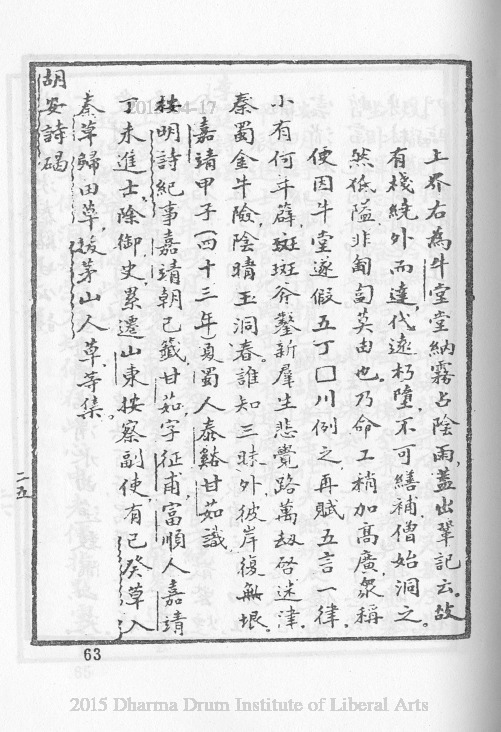 上界右為牛堂堂納霧占陰雨蓋出輩記云故
有棧繞外而達代遠朽墮不可繕補僧始洞之
然低隘非匍匐莫由也乃命工稍加高廣衆稱
便因牛堂遂假五丁囗川例之再賦五言一律
小有何年辟斑斑斧鑿新羣生悲覺路萬劫啓迷津
秦蜀金牛險陰晴玉洞春誰知三昧外彼岸復無垠
嘉靖甲子(四十三年)夏蜀人泰谿甘茹識
按明詩紀事嘉靖朝己籤甘茹字征甫富順人嘉靖
丁未進士除御史累遷山東按察副使有己癸草入
秦草歸田草茅山人草等集
胡安詩碣
二五
63
2015-04-17
2015 Dharma Drum Institute of Liberal Arts